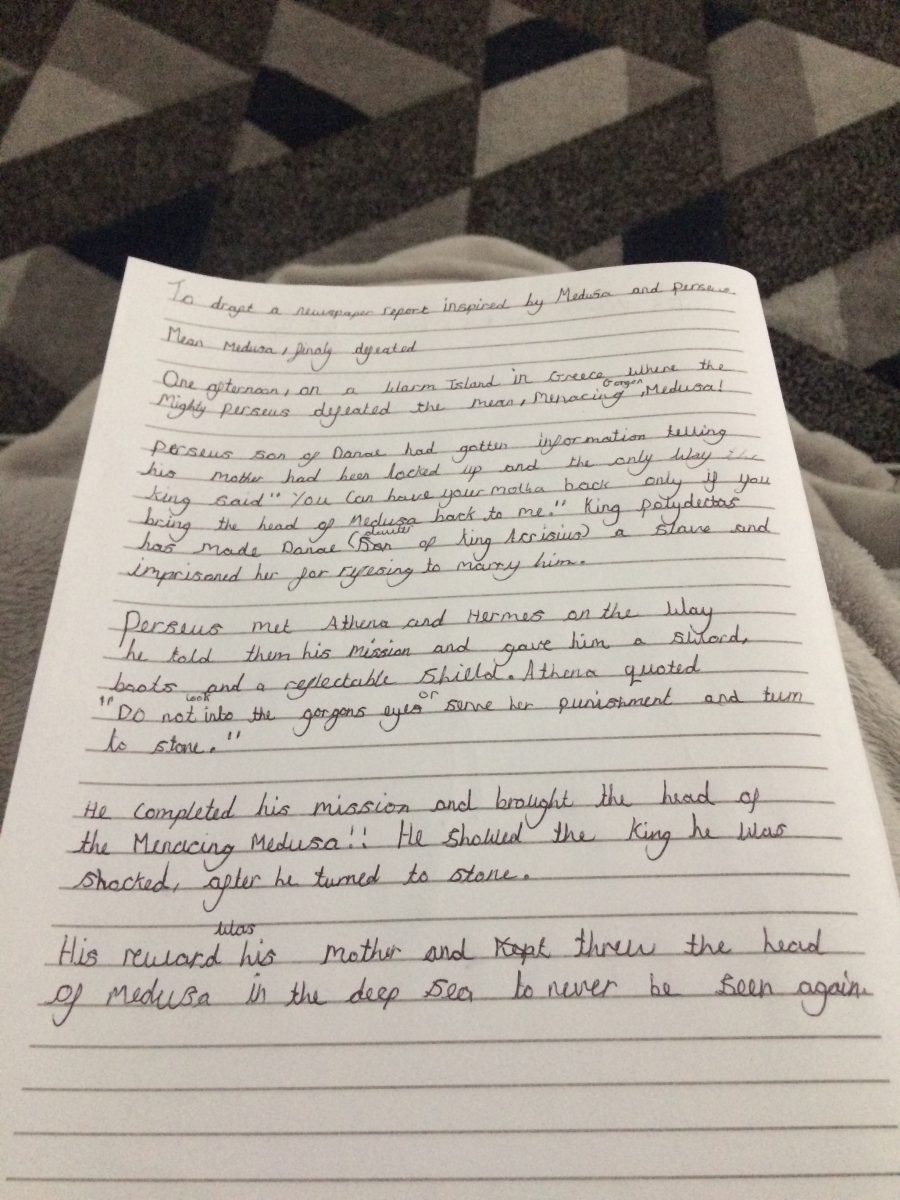 To drapt a newspaper report inspired by Medusa and perseus.
Mean Medusa, finaly defeated
One afternoon, on a Warm Island in Greece where the
Mighty perseus defeated the mean, Menacing Gorgon, Medusa!
Perseus son of Danae had gotten information telling
his mother had been locked up and the only way the
king said " You Can have your back only if you
bring the head of Medusa back to me." King polydectas
has made Danae (Son of king Acrisius) a slave and
imprisoned her for to marry him.
Perseus met Athena and Hermes on the Way
he told them his mission and gave him a sword,
boots and a reflectable shield. Athena quoted
"Do not look into the gorgons eyes or serve her punishment and turn
to stone."
He completed his mission and brought the head of
the Menacing Medusa!! He showed the king he was
shocked, after he turned to stone.
His reward was his mother and Kept threw the head
of Medusa in the deep sea to never be seen again.